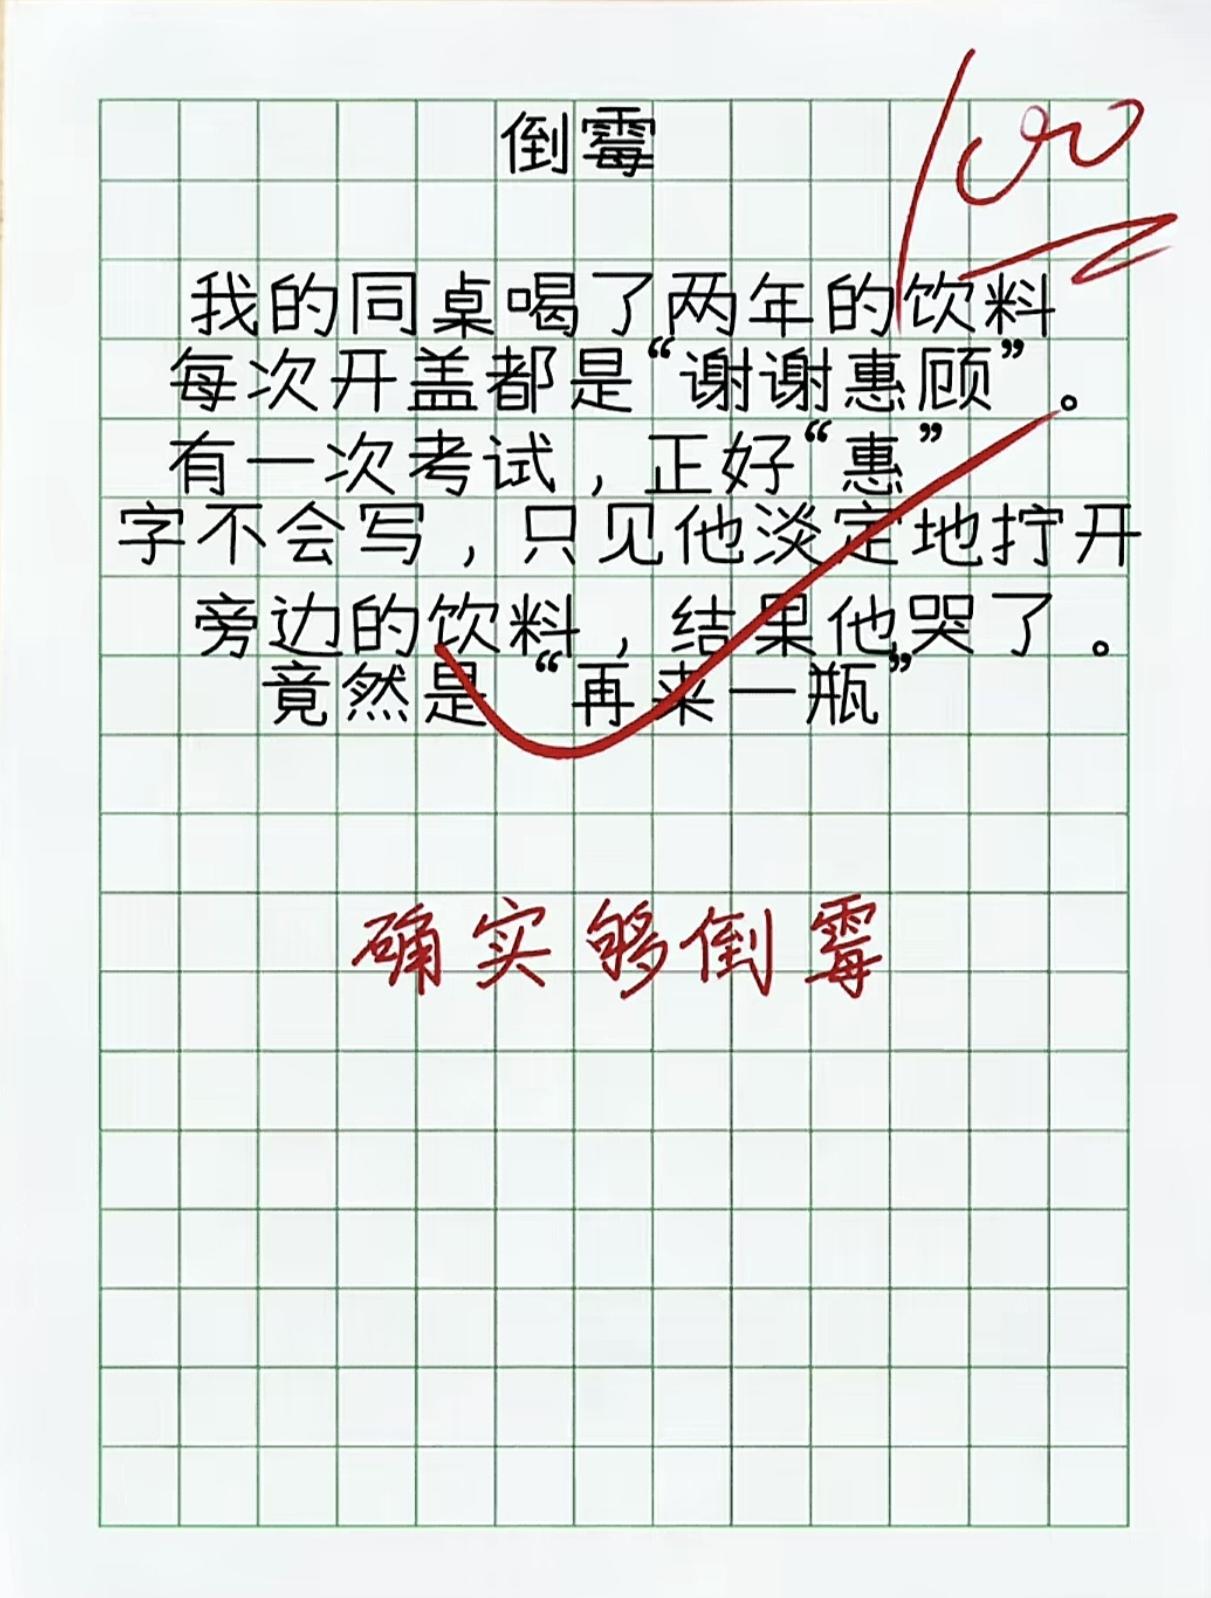 倒霉
100
我的同桌喝了两年的饮料
每次开盖都是“谢谢惠顾”。
有一次考试，正好“惠”
字不会写，只见他淡定地拧开
旁边的饮料，结果他哭了。
竟然是“再来一瓶”
确实够倒霉